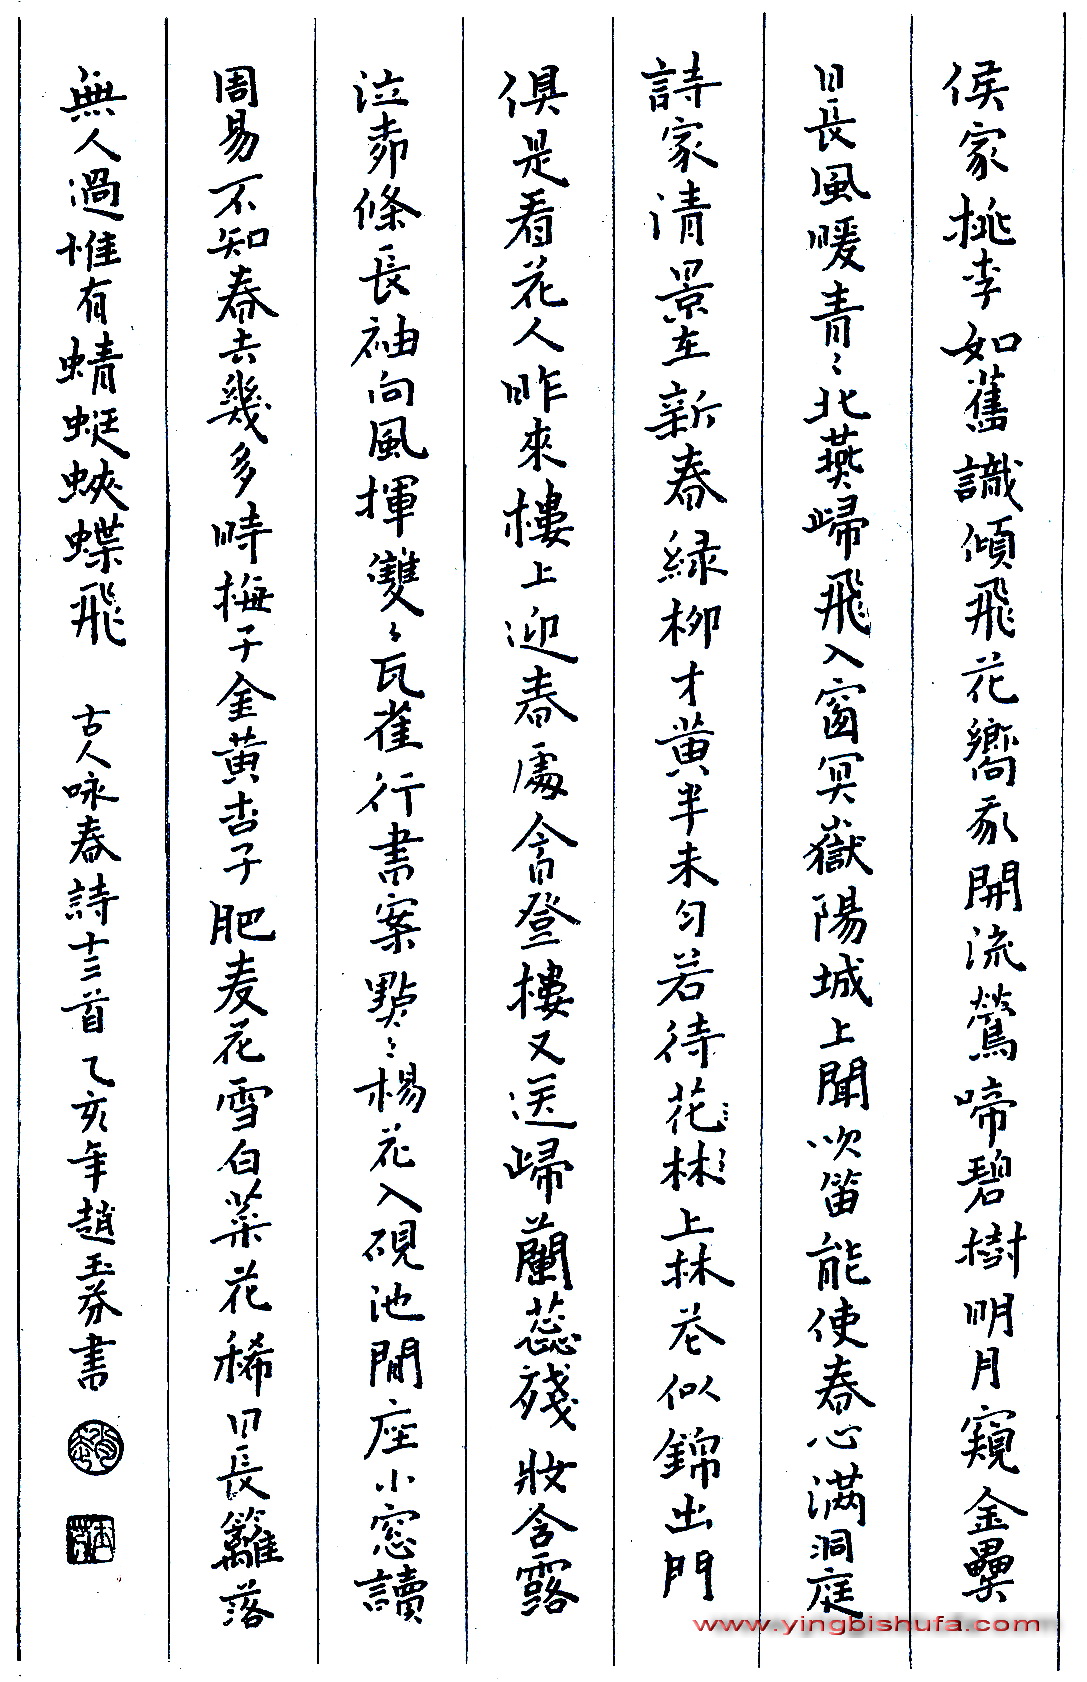 侯家桃李如舊識傾飛花嚮我開流鶯啼碧樹明月窺金罍
日長風暖青〻北燕歸飛入窗冥嶽陽城上聞吹笛能使春心滿洞庭
詩家清景在新春緑柳才黄半未匀若待花〻林〻上林花似錦出門
俱是看花人昨來樓上迎春處今日登樓又送歸蘭蕊殘妝含露
泣柳條長袖向風揮雙〻瓦雀行書案點〻楊花入硯池閒座小窓讀
周易不知春去幾多時梅子金黄杏子肥麦花雪白菜花稀日長籬落
無人過惟有蜻蜓蛺蝶飛 古人咏春詩十三首 乙亥年趙玉芬書
www.yingbishufa.com